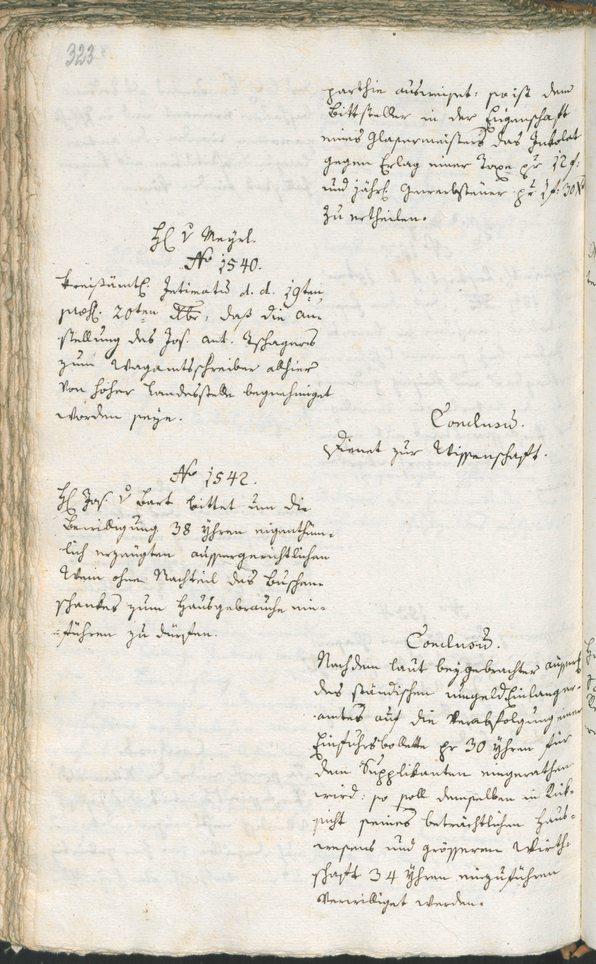 323
parthie ausweiset: so ist dem
Bittsteller in der Eigenschaft
eines Glasermeisters das Inkolat
gegen Erlag einer Taxe pr. 12 f.
und jährl. Gewerbsteuer pr 1 f. 30 x
zu ertheilen.
H. v Meyrl.
No 1540.
Kreisämtl. Intimats d. d. 19ten
20ten Xbr, daß die An¬
stellung des Jos. Ant. Tschagers
zum Waagamtsschreiber allhier
von hoher Landesstelle begnehmiget
worden seye.
Conclusum.
Dienet zur Wissenschaft.
No 1542.
H. Jos. v Bart bittet um die
Bewilligung 38 Yhren eigenthüm¬
lich erzeugten aussergerichtlichen
Wein ohne Nachteil des Buschen¬
schankes zum Hausgebrauche ein¬
führen zu dürfen.
Conclusum.
Nachdem laut beygebrachter
des ständischen Umgeld Einlanger¬
amtes auf die Verabfolgung einer
Einfuhrsbollette pr 30 Yhren für
dem Supplikanten eingerathen
wird: so soll demselben in Rük¬
sicht seines beträchtlichen Haus¬
wesens und grösseren Wirth¬
schaft 34 Yhren einzuführen
verwilliget werden.